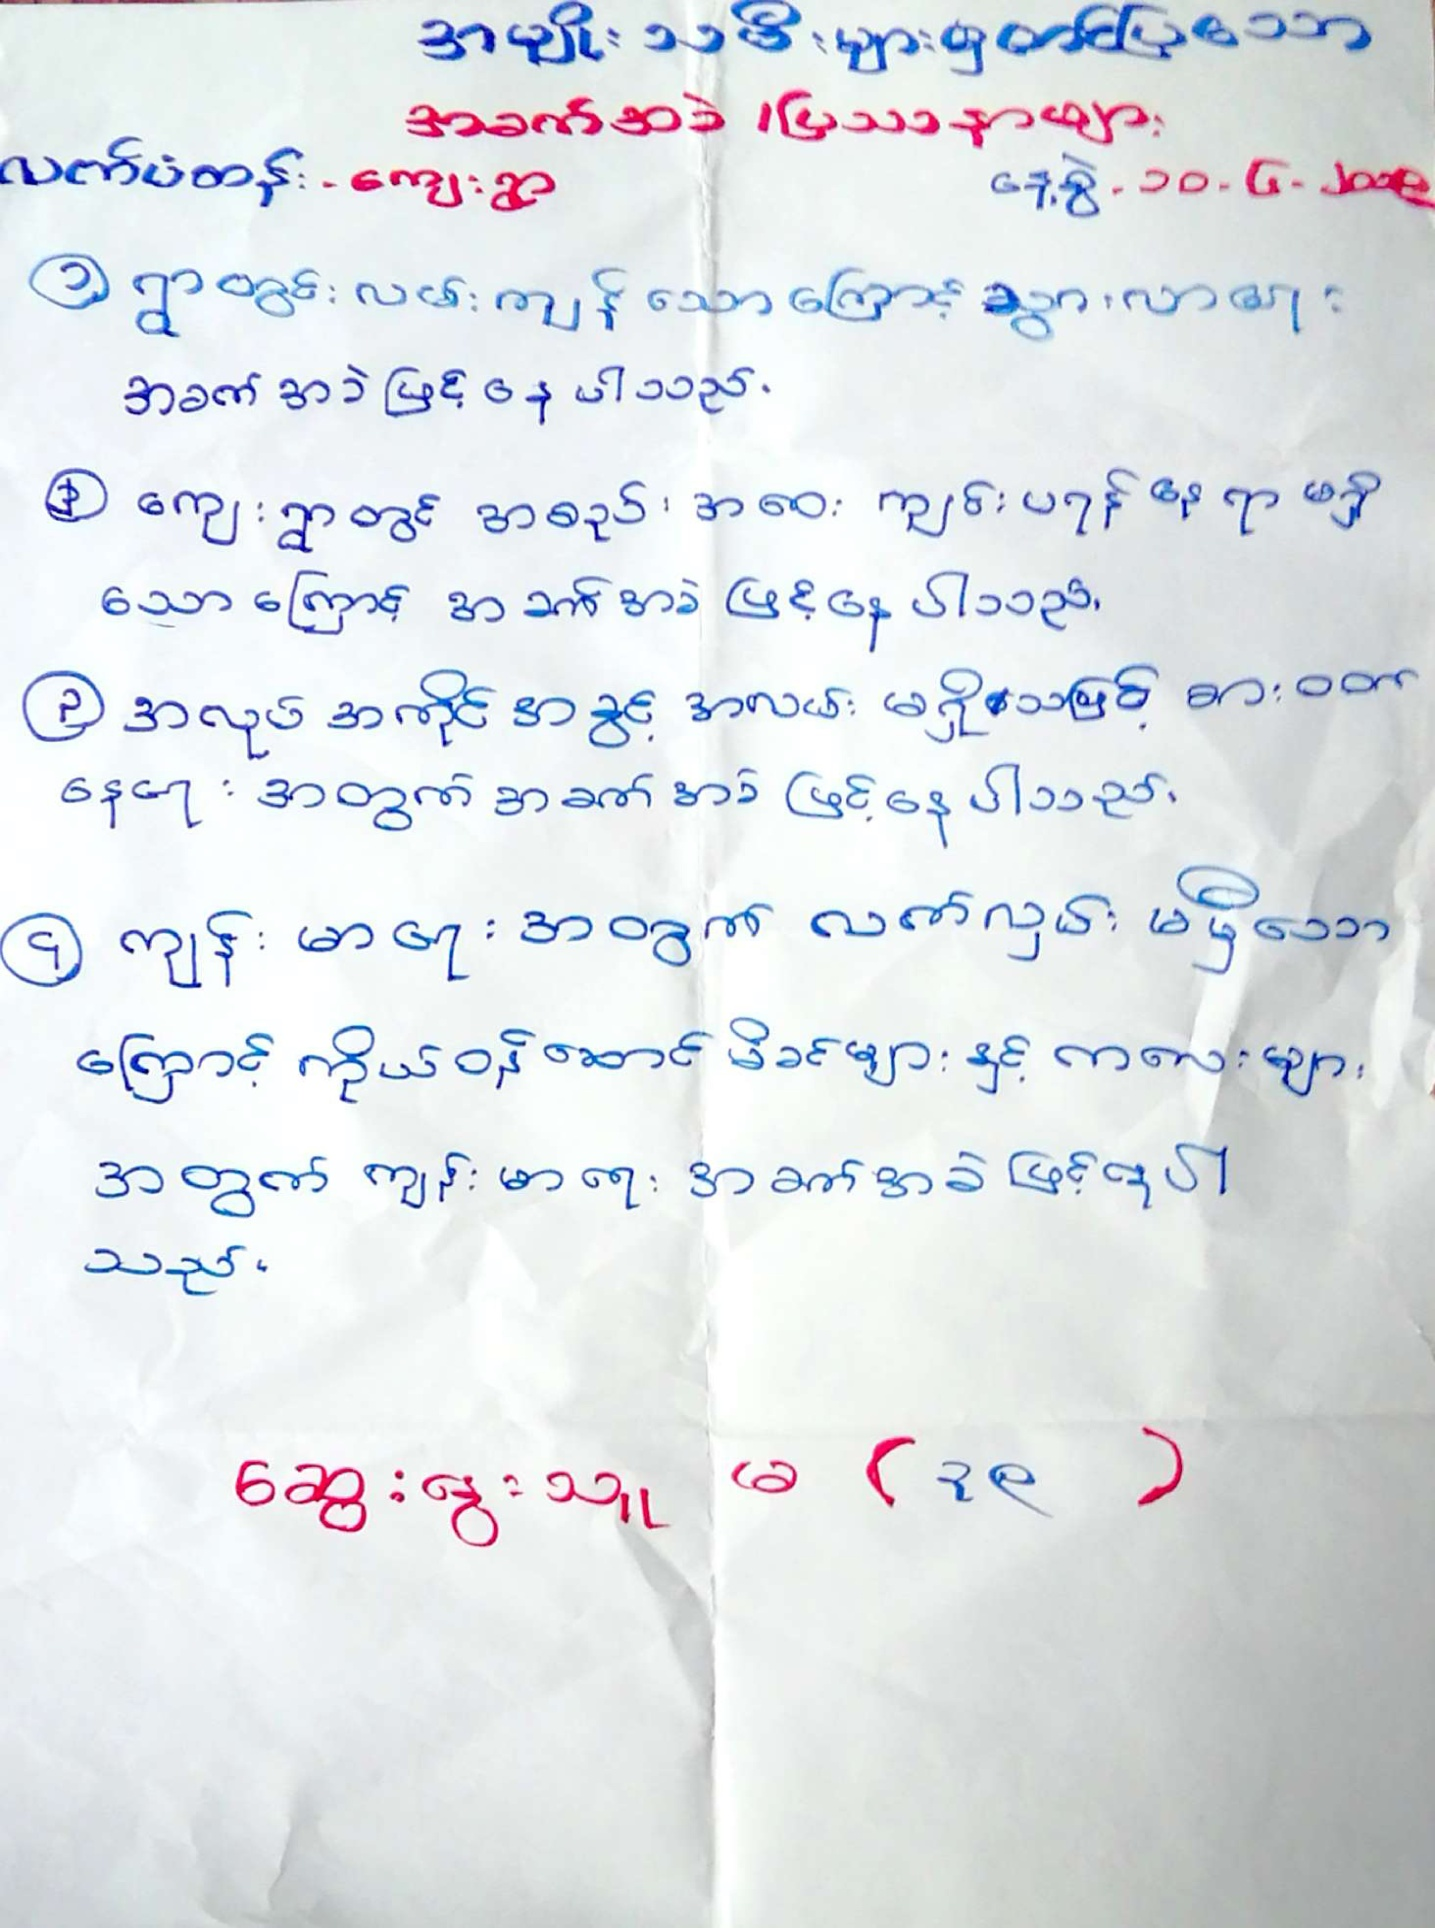 အမျိုးသမီးများမှတင်ပြသော
အခက်အခဲ ၊ပြဿနာများ
လက်ပံတန်း - ကျေးရွာ
နေ့စွဲ - ၁၀ - ၆ - ၂၀၁၉
၁ ရွာတွင်းလမ်းကျန်သောကြောင့် သွား၊လာရေး
အခက်အခဲဖြင့်နေပါသည်.
၂ ကျေးရွာတွင် အစည်းအဝေး ကျင်းပရန်နေရာမရှိ
သောကြောင့် အခက်အခဲ ဖြင့်နေပါသည်.
၃ အလုပ်အကိုင်အခွင့်အလမ်း မရှိသဖြင့် စားဝတ်
နေရေးအတွက် အခက်အခဲ ဖြင့်နေပါသည်.
၄ ကျန်းမာရေးအတွက် လက်လှမ်းမမှီသော
ကြောင့် ကိုယ်ဝန်ဆောင်မိခင်များနှင့် ကလေးများ
အတွက် ကျန်းမာရေး အခက်အခဲဖြင့်နေပါ
သည်.
ဆွေးနွေးသူ မ ( ၃၉ )